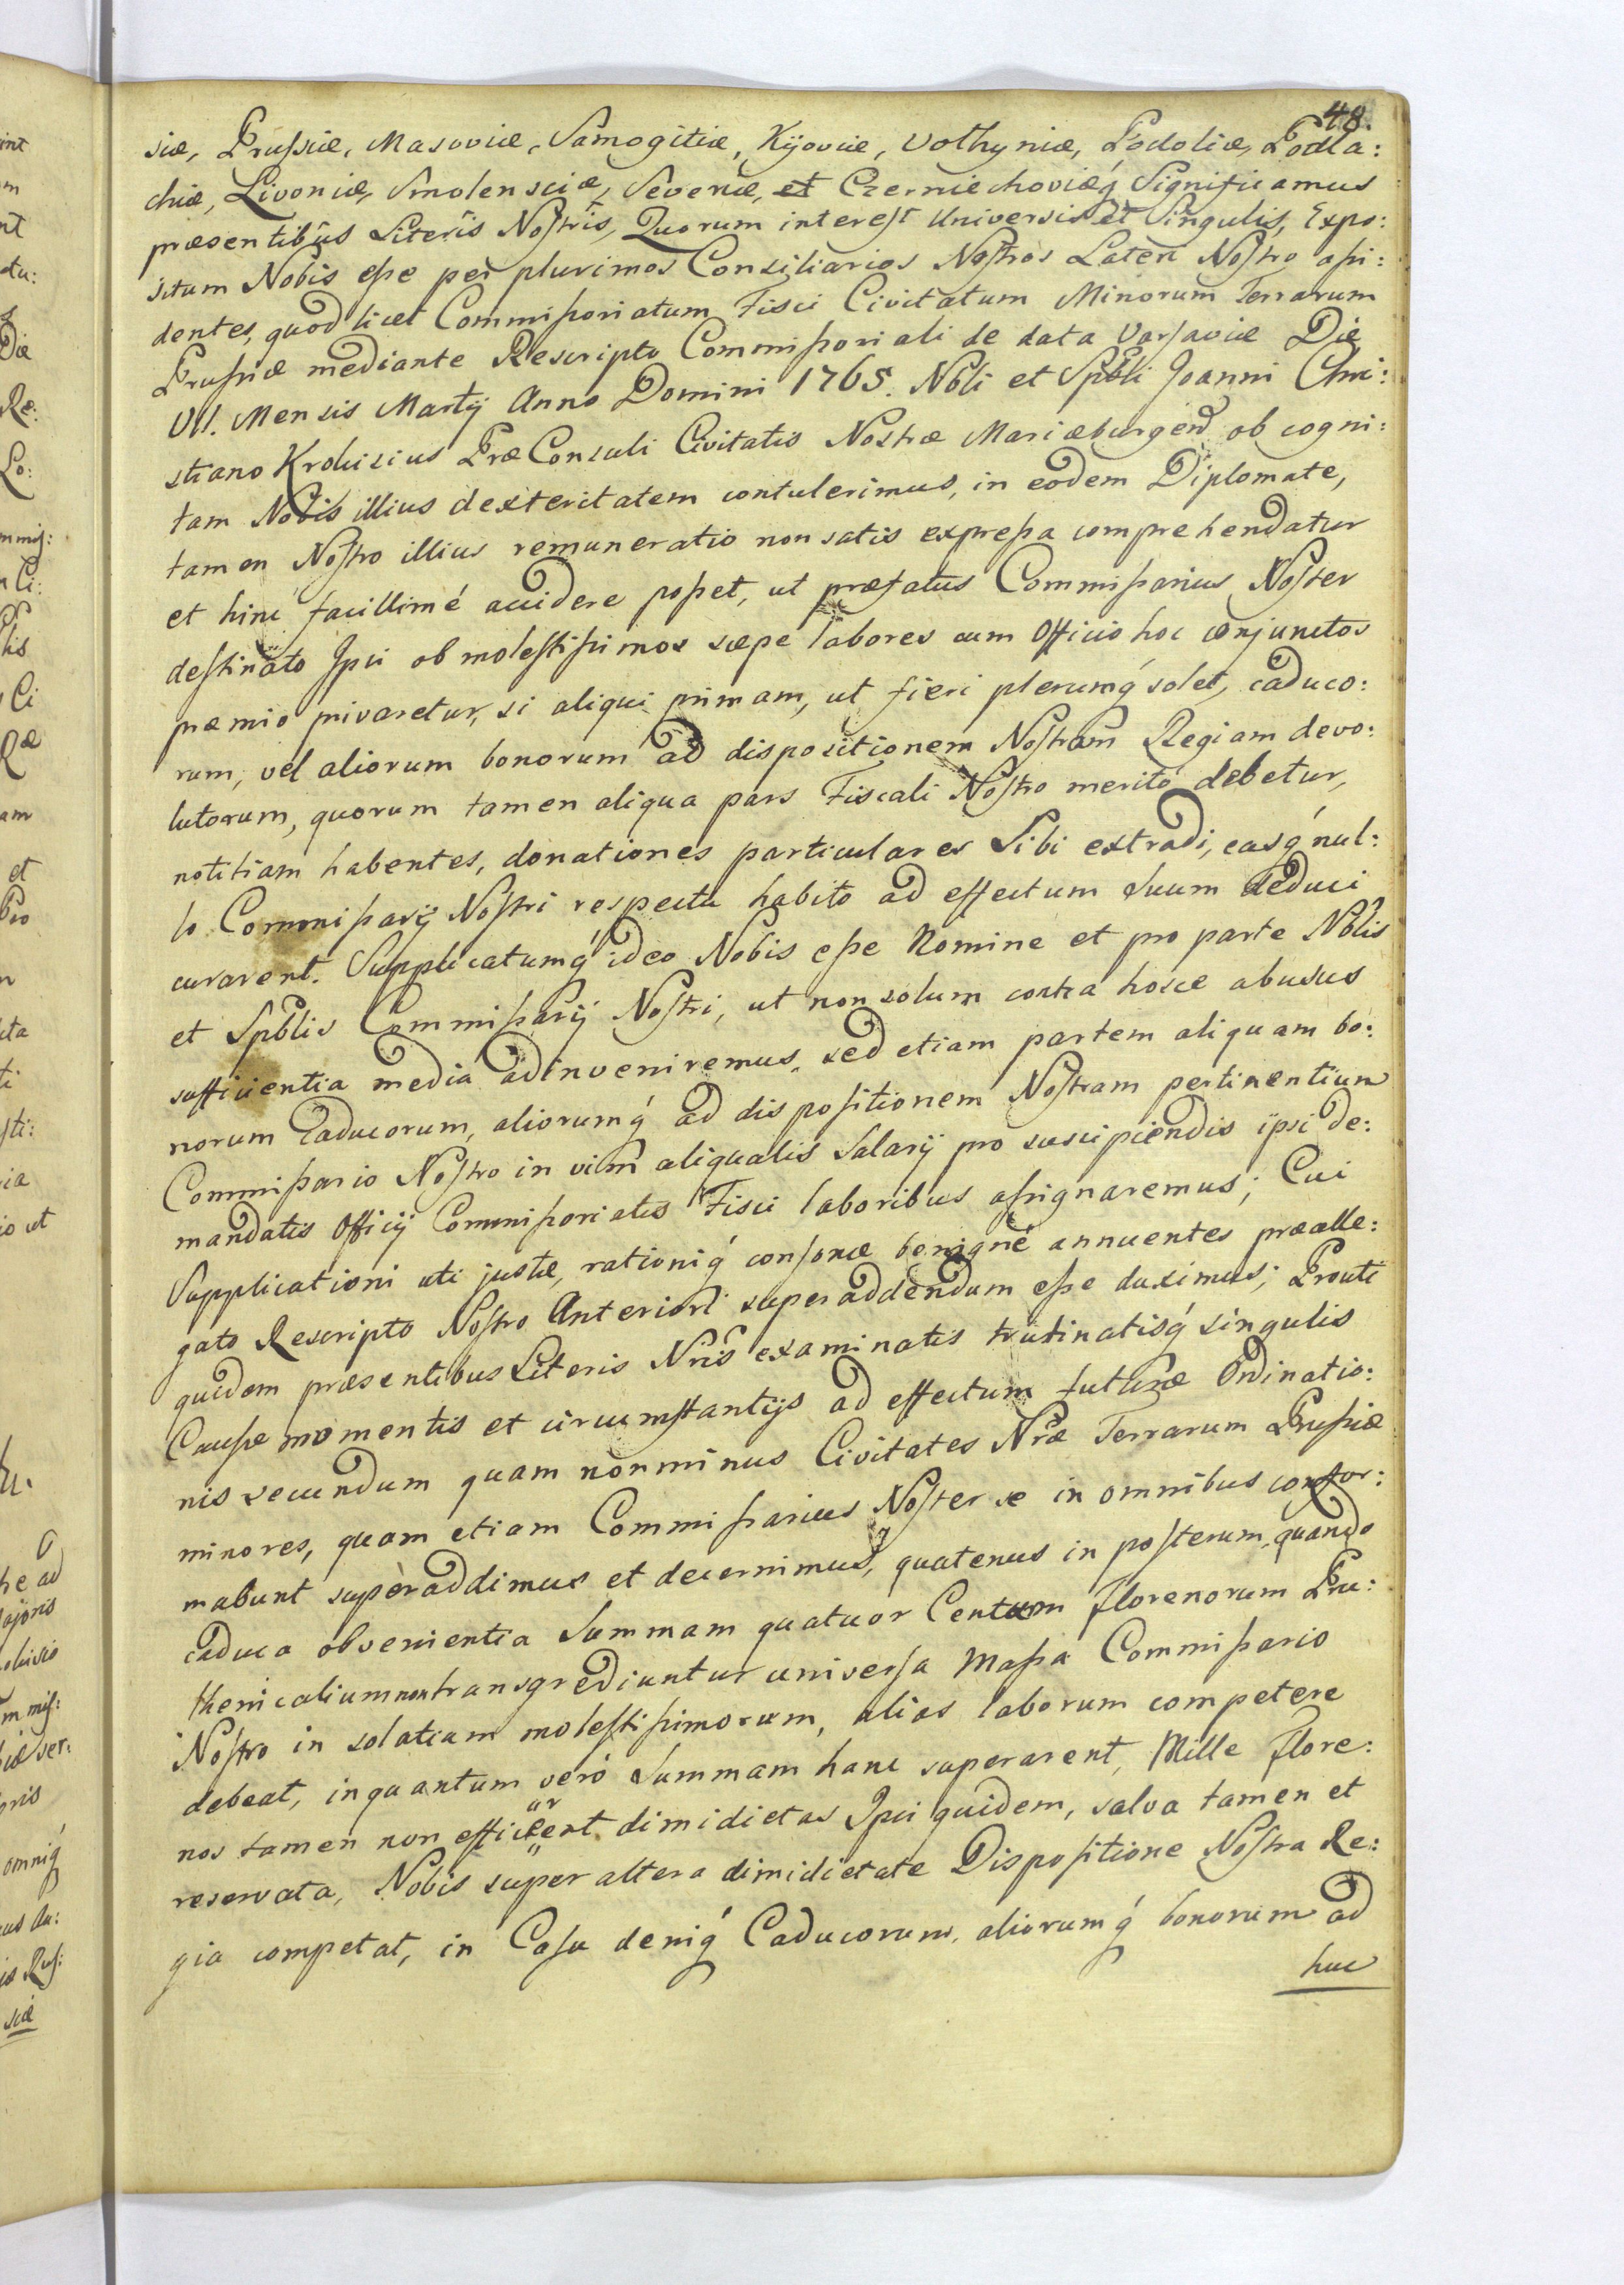 48.
siæ, Prussiæ, Masoviæ, Samogitiæ, Kijoviæ, Volhyniæ, Podoliæ, Podla:
chiæ, Livoniæ, Smolensciæ, Severiæ, et Czerniechoviæq́ Significamus
præsentibus Literis Nostris, Quorum interest Universis et Singulis, Expo:
situm Nobis esse per plurimos Consiliarios Nostros Lateri Nostro assi:
dentes, quod licet Commissoriatum Fisci Civitatum Minorum Terrarum
Prussiæ mediante Rescripto Commissoriali de data Varsaviæ Die
VII. Mensis Martij Anno Domini 1765. Nbli et Spbli Joanni Chri:
stiano Krohisius PræConsuli Civitatis Nostræ Mariæburgens ob cogni:
tam Nobis illius dexteritatem contulerimus, in eodem Diplomate,
tamen Nostro illius remuneratio non satis expressa comprehendatur
et hinc facillimé accidere posset, ut præfatus Commissarius Noster
destinato Ipsi ob molestissimos sæpe labores cum Officio hoc conjunctos
præmio privaretur, si aliqui primam, ut fieri plerumq́ solet, caduco:
rum, vel aliorum bonorum ad dispositionem Nostram Regiam devo:
lutorum, quorum tamen aliqua pars Fiscali Nostro merito debetur,
notitiam habentes, donationes particulares Sibi extradi, easq́ nul:
lo Commissarij Nostri respectu habito ad effectum suum deduci
curarent. Supplicatumq́ ideo Nobis esse Nomine et pro parte Nblis
et Spblis Commissarij Nostri, ut non solum contra hosce abusus
sufficientia media adinveniremus, sed etiam partem aliquam bo:
norum Caducorum, aliorumq́ ad dispositionem Nostram pertinentium
Commissario Nostro in vim aliqualis Salarij pro suscipiendis ipsi de:
mandatis Officij Commissoriatus Fisci laboribus assignaremus; Cui
Supplicationi uti justæ, rationiq́ consonæ benigné annuentes præalle:
gato Rescripto Nostro Anteriori superaddendum esse duximus; Prouti
quidem præsentibus Literis Nris examinatis trutinatisq́ singulis
Causæ momentis et circumstantijs ad effectum futuræ Ordinatio:
nis secundum quam non minus Civitates Nræ Terrarum Prussiæ
minores, quam etiam Commissarius Noster se in omnibus confor:
mabunt superaddimus et decernimus, quatenus in posterum, quando
caduca obvenientia Summam quatuor Centum florenorum Pru:
thenicalium non transgrediuntur universa Massa Commissario
Nostro in solatium molestissimorum, alias laborum competere
debeat, inquantum veró Summam hanc superarent, Mille flore:
nos tamen non efficerent dimidietas Ipsi quidem, salva tamen et
reservata, Nobis super altera dimidietate Dispositione Nostra Re:
gia competat, in Casu deniq́ Caducorum, aliorumq́ bonorum ad
huc